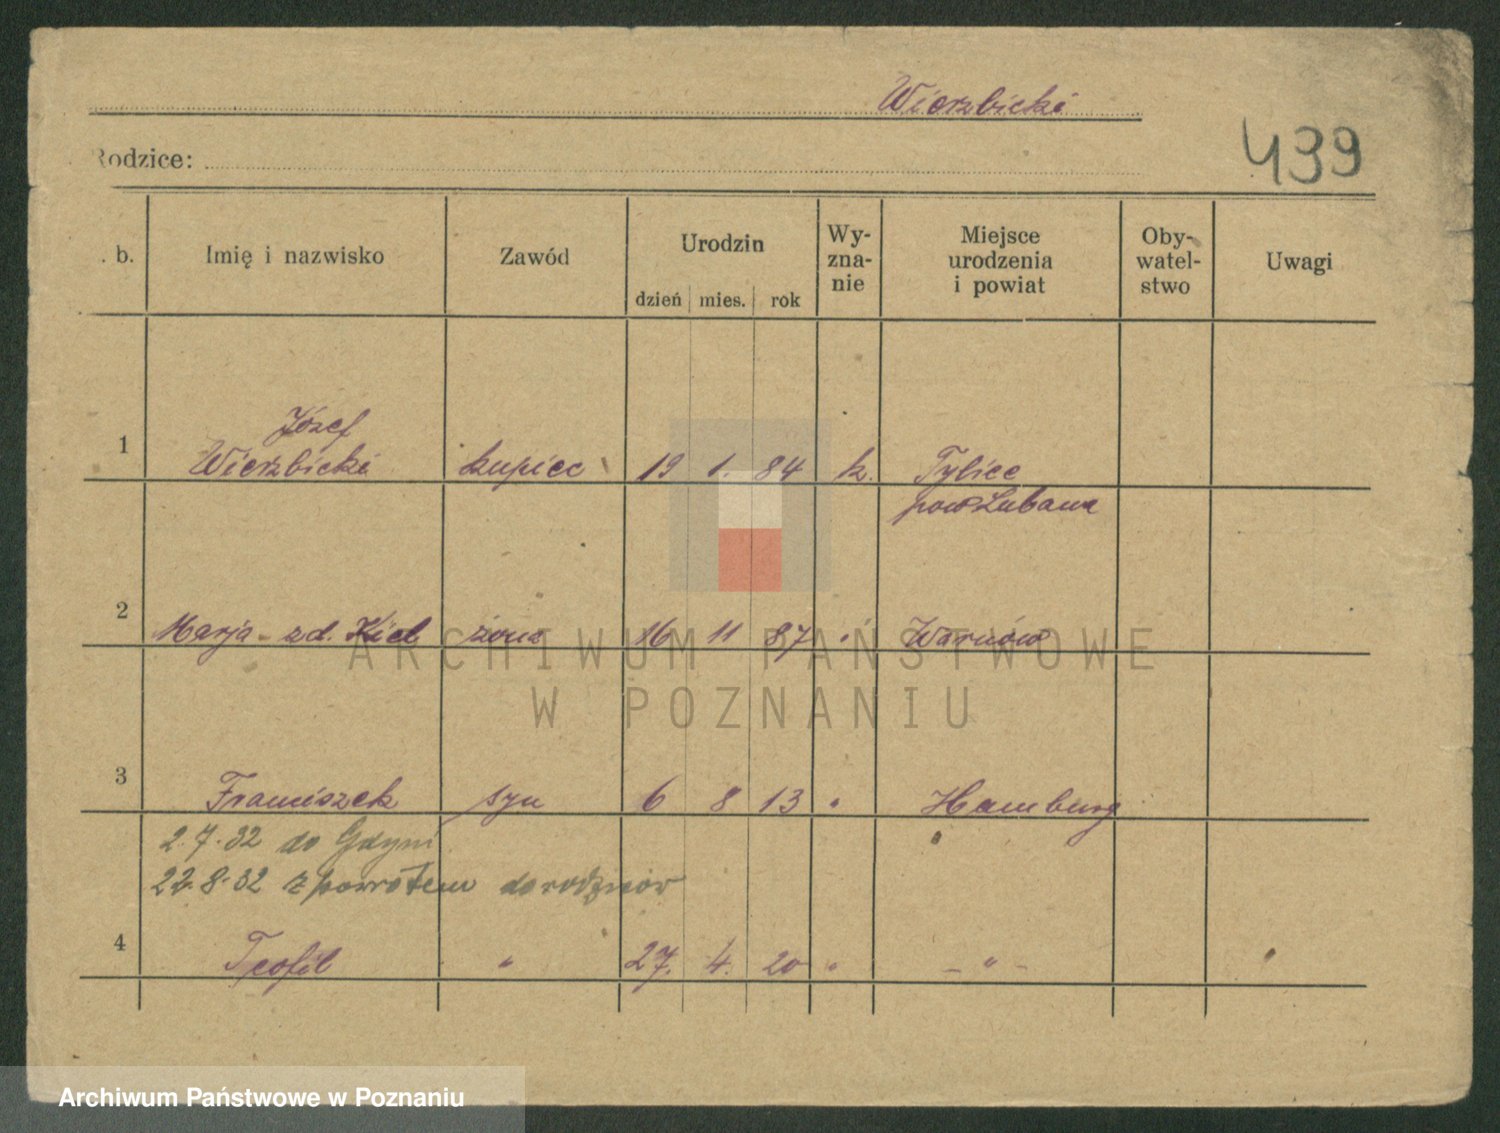 Wierzbicki
Rodzice:
439
. b. Imię i nazwisko Zawód Urodzin dzień mies. rok Wy-zna-nie Miejsce urodzenia i powiat Oby-watel-stwo Uwagi
Józef
1 Wierzbicki kupiec 19 1. 84 k. Tylice
pow Lubawa
2 Marja zd. Kiel żona 16 11 87 " Warnów
3 Franciszek syn 6 8 13 " Hamburg
2.7.32 do Gdyni
22.8.32 z powrotem do rodziców
4 Teofil " 27. 4. 20 " - " -
ARCHIWUM PAŃSTWOWE
W POZNANIU
Archiwum Państwowe w Poznaniu